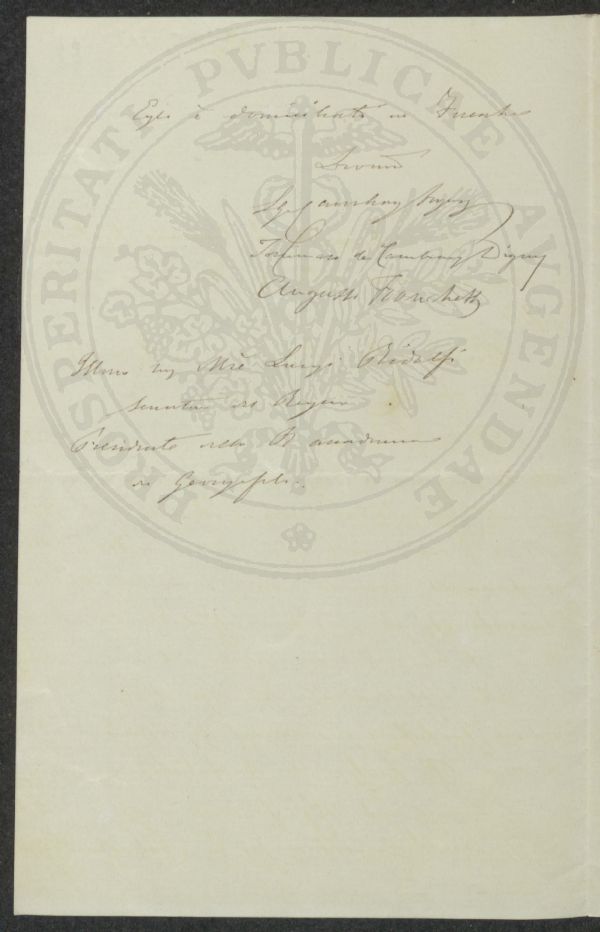 PROSPERITATI PVBLICAE AVGENDAE
Egli è domiciliato in Firenze
L. G. Cambray Digny
Tommaso de Cambray Digny
Augusto Franchetti
Illmo Sig Mse Luigi Ridolfi
Senatore del Regno
Presidente della R accademia
dei Georgofili.